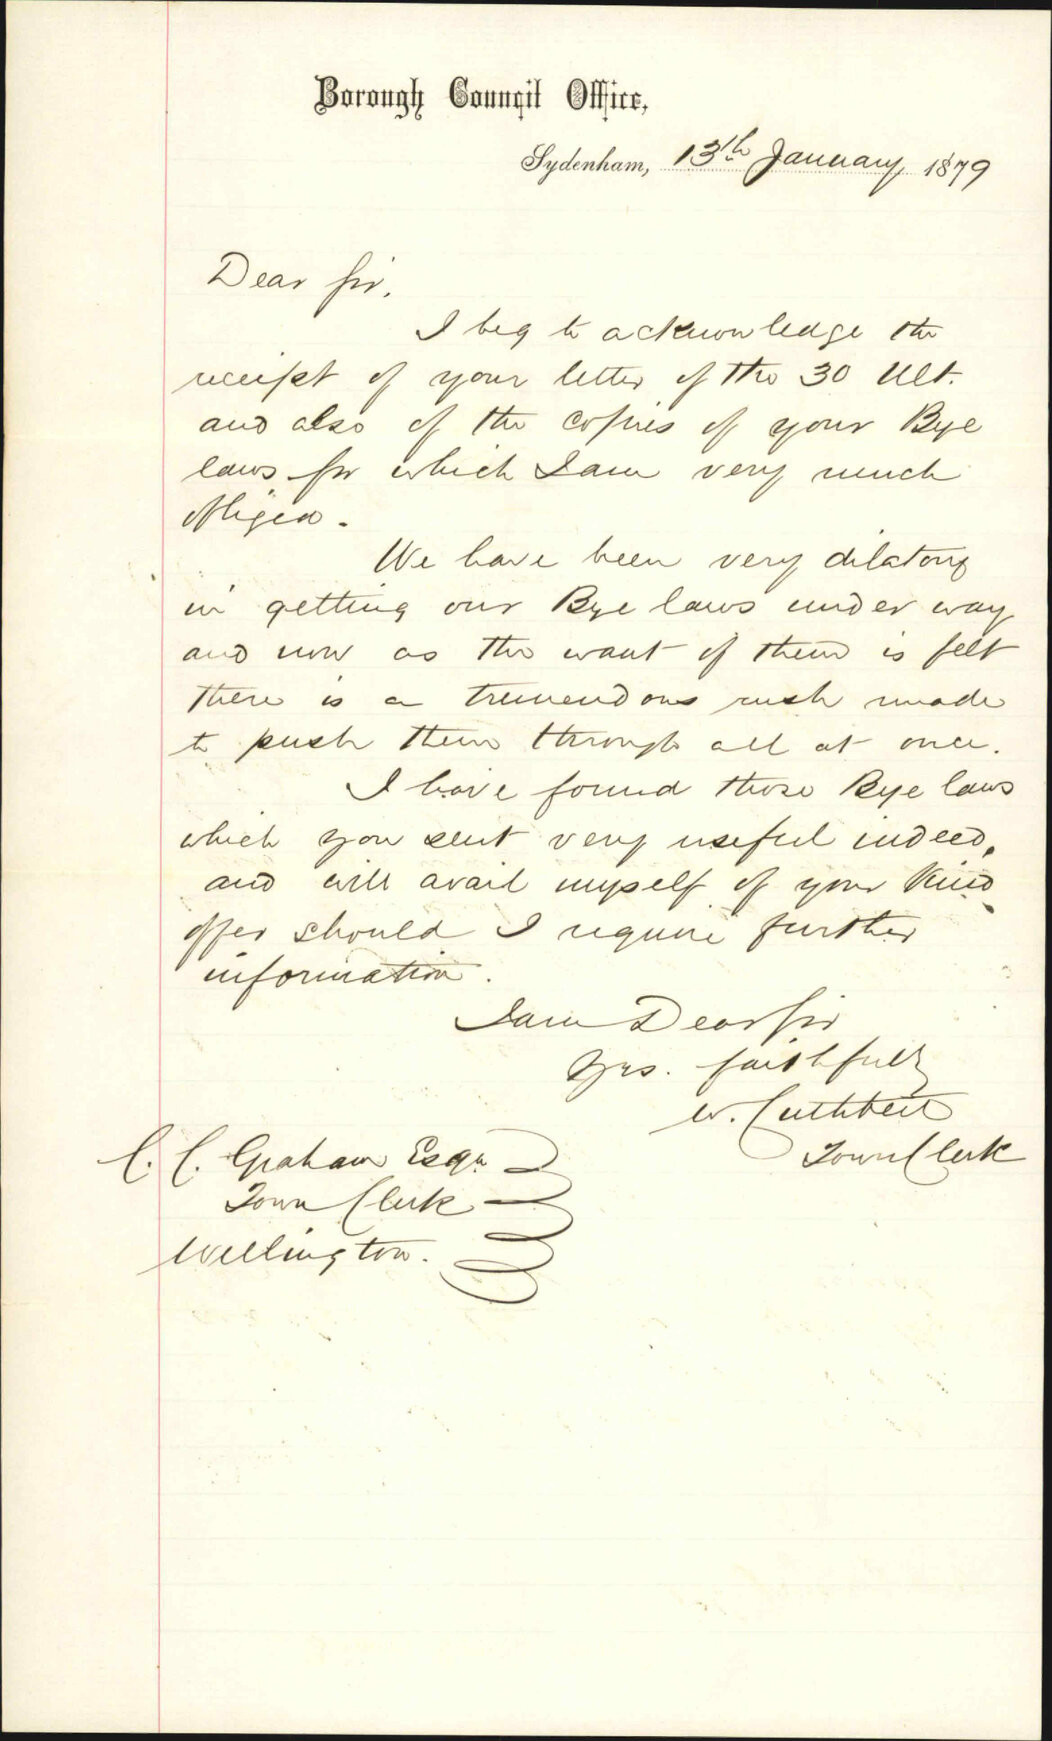 Borough Council Office,
Sydenham, 13th January 1879
Dear Sir,
I beg to acknowledge the
receipt of your letter of the 30 Ult.
and also of the copies of your Bye
laws for which I am very much
obliged.
We have been very dilatory
in getting our Bye laws under way
and now as the want of them is felt
there is a tremendous rush made
to push them through all at once.
I have found those Bye laws
which you sent very useful indeed,
and will avail myself of your kind
offer should I require further
information.
I am Dear Sir
Yrs. faithfully
W. Cuthbert
Town Clerk
C. C. Graham Esqr
Town Clerk
Wellington.